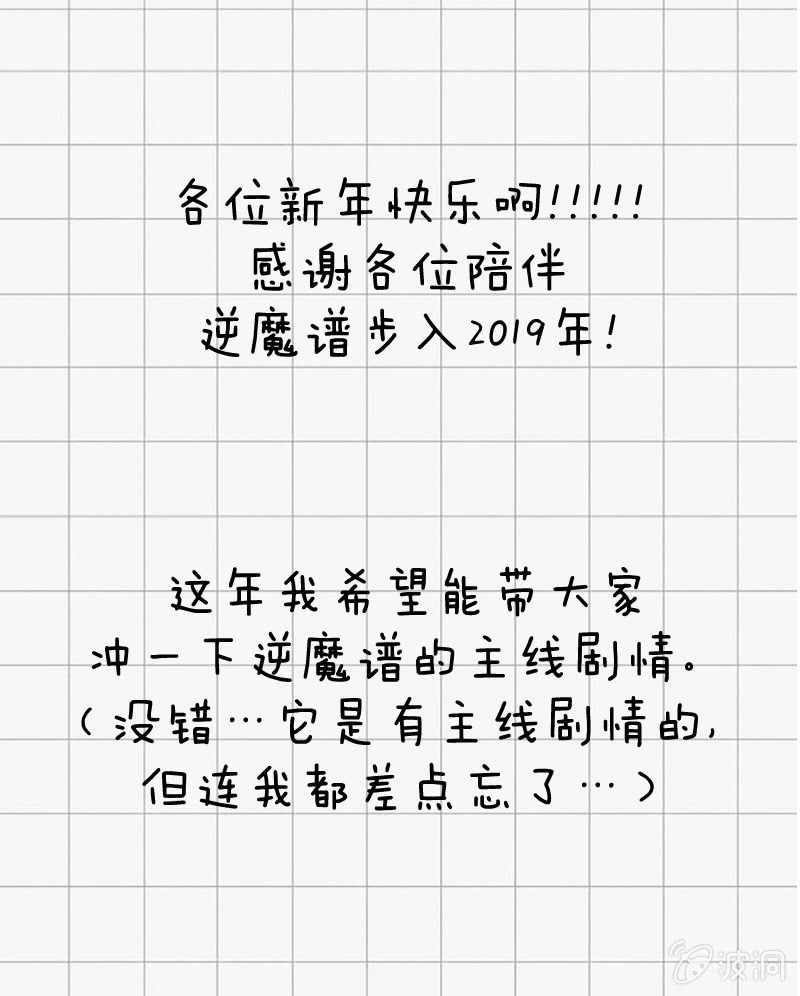 各位新年快乐啊!!!!!
感谢各位陪伴
逆魔谱步入2019年!
这年我希望能带大家
冲一下逆魔谱的主线剧情。
(没错…它是有主线剧情的,
但连我都差点忘了…)
波洞